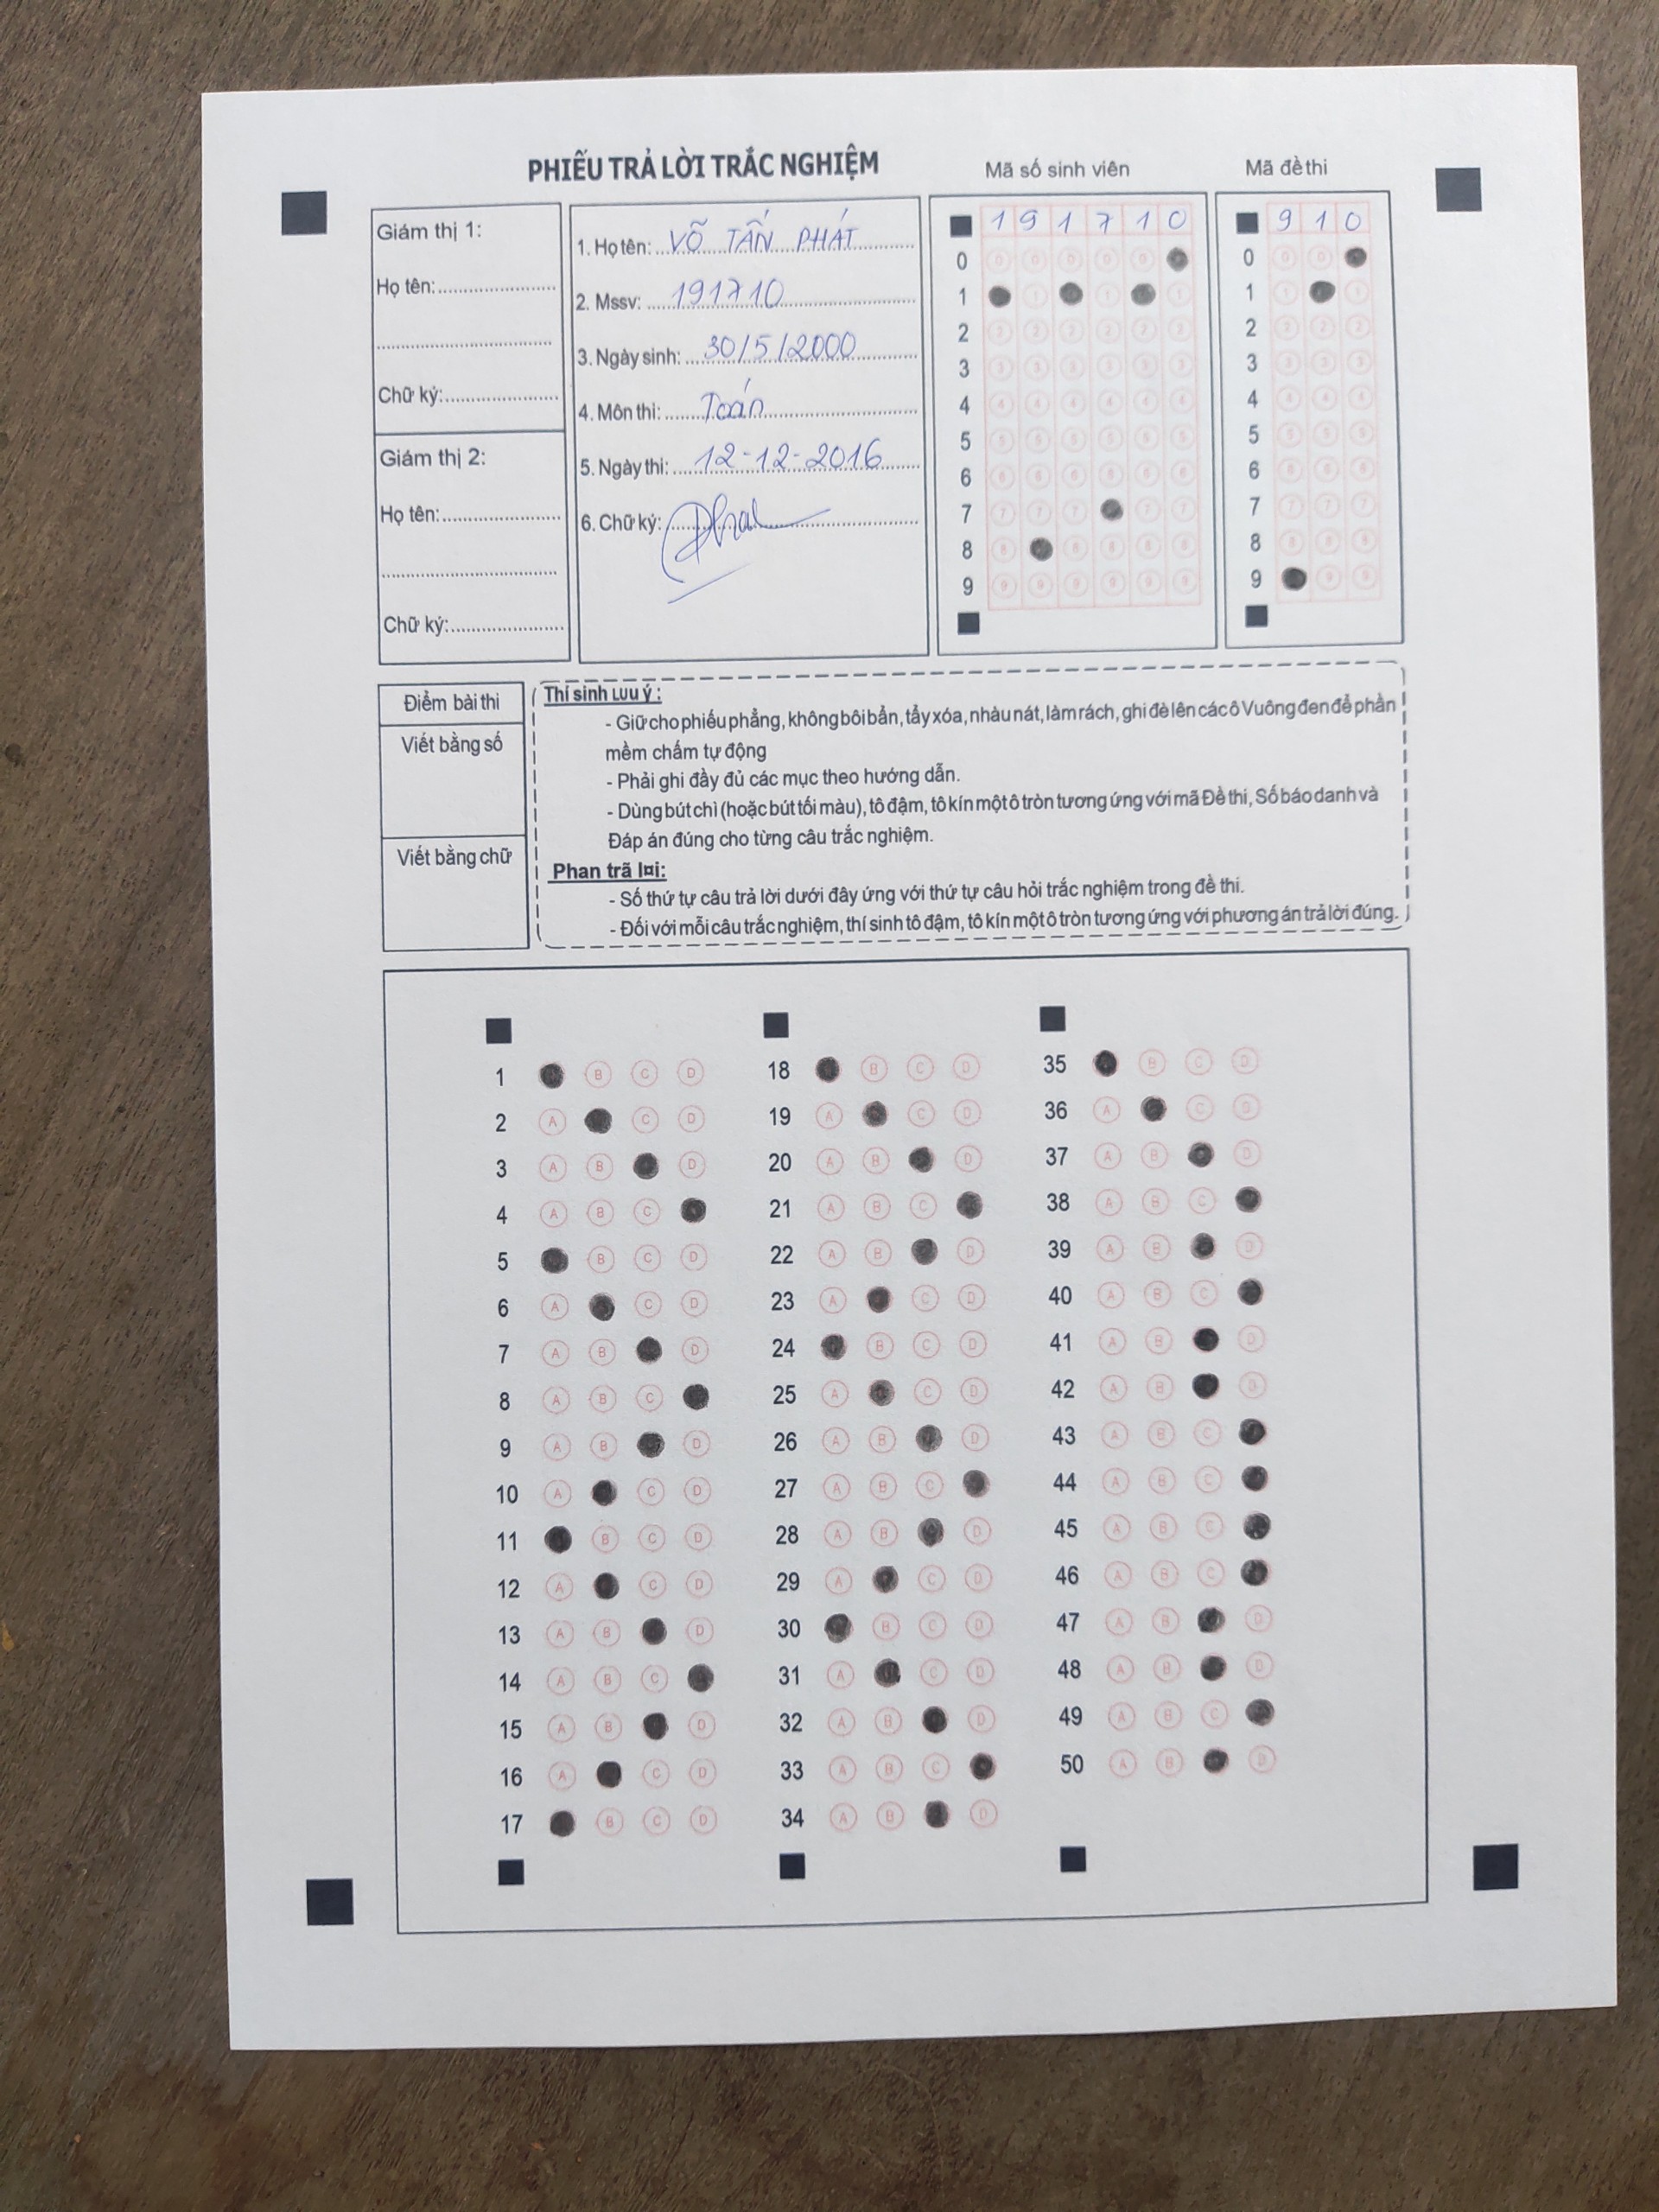 PHIẾU TRẢ LỜI TRẮC NGHIỆM
Mã số sinh viên
Mã đề thi
Giám thị 1:
Họ tên:
Chữ ký:
Giám thị 2:
Họ tên:
Chữ ký:
1. Họ tên: VÕ TẤN PHÁT
2. Mssv: 191710
3. Ngày sinh: 30/5/2000
4. Môn thi: Toán
5. Ngày thi: 12-12-2016
6. Chữ ký:
1 9 1 7 1 0
0
1
2
3
4
5
6
7
8
9
9 1 0
0
1
2
3
4
5
6
7
8
9
Điểm bài thi
Viết bằng số
Viết bằng chữ
Thí sinh Lưu ý :
- Giữ cho phiếu phẳng, không bôi bẩn, tẩy xóa, nhàu nát, làm rách, ghi đè lên các ô Vuông đen để phần
mềm chấm tự động
- Phải ghi đầy đủ các mục theo hướng dẫn.
- Dùng bút chì (hoặc bút tối màu), tô đậm, tô kín một ô tròn tương ứng với mã Đề thi, Số báo danh và
Đáp án đúng cho từng câu trắc nghiệm.
Phan trã l¤i:
- Số thứ tự câu trả lời dưới đây ứng với thứ tự câu hỏi trắc nghiệm trong đề thi.
- Đối với mỗi câu trắc nghiệm, thí sinh tô đậm, tô kín một ô tròn tương ứng với phương án trả lời đúng.
1 B C D
2 A C D
3 A B D
4 A B C
5 B C D
6 A C D
7 A B D
8 A B C
9 A B D
10 A C D
11 B C D
12 A C D
13 A B D
14 A B C
15 A B D
16 A C D
17 B C D
18 B C D
19 A C D
20 A B D
21 A B C
22 A B D
23 A C D
24 B C D
25 A C D
26 A B D
27 A B C
28 A B D
29 A C D
30 B C D
31 A C D
32 A B D
33 A B C
34 A B D
35 B C D
36 A C D
37 A B D
38 A B C
39 A B D
40 A B C
41 A B D
42 A B D
43 A B C
44 A B C
45 A B C
46 A B C
47 A B D
48 A B D
49 A B C
50 A B D